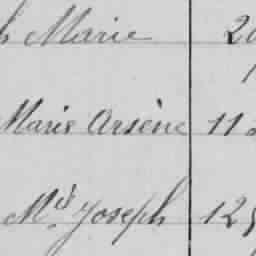 h Marie 20
Marie Arsène 11
Md Joseph 125